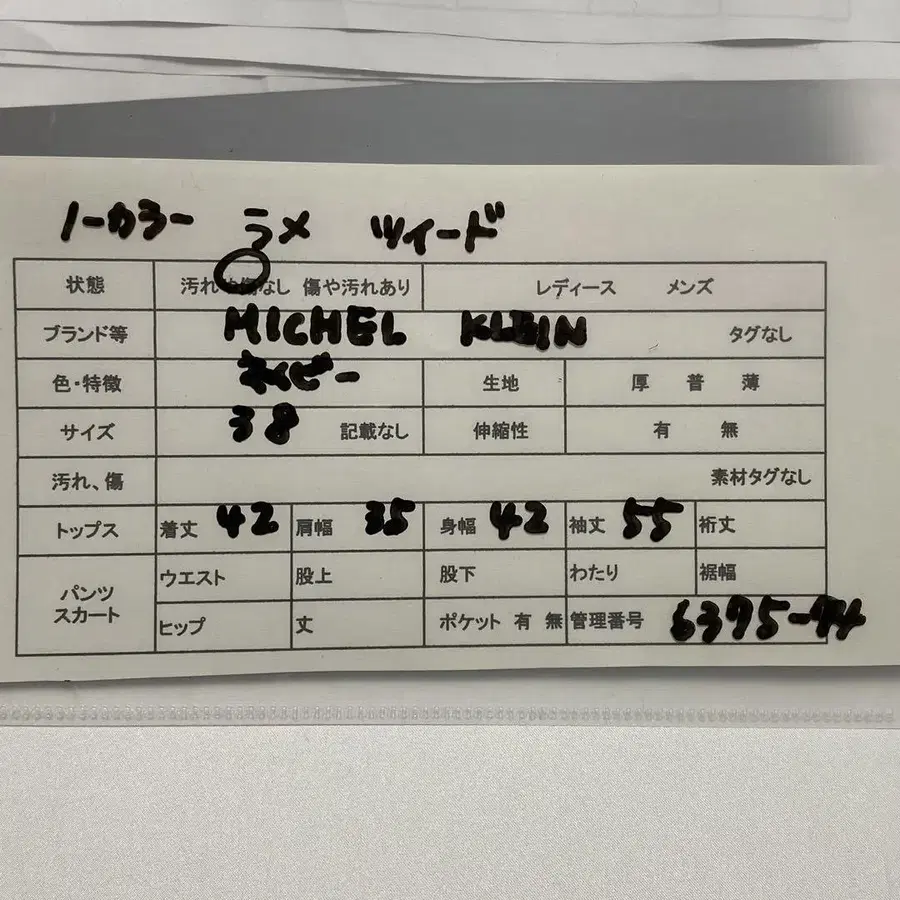 ノーカラー ラメ ツイード
状態 汚れや傷なし 傷や汚れあり レディース メンズ
ブランド等 MICHEL KLEIN タグなし
色・特徴 ネイビー 生地 厚 普 薄
サイズ 38 記載なし 伸縮性 有 無
汚れ、傷 素材タグなし
トップス 着丈 42 肩幅 35 身幅 42 袖丈 55 裄丈
パンツ スカート ウエスト 股上 股下 わたり 裾幅
ヒップ 丈 ポケット 有 無 管理番号 6375-74